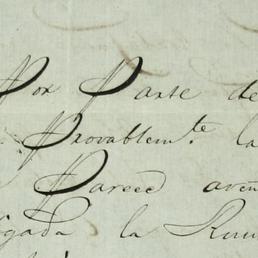 Por Parte de
Provablem.te la
Pareeé
gada la